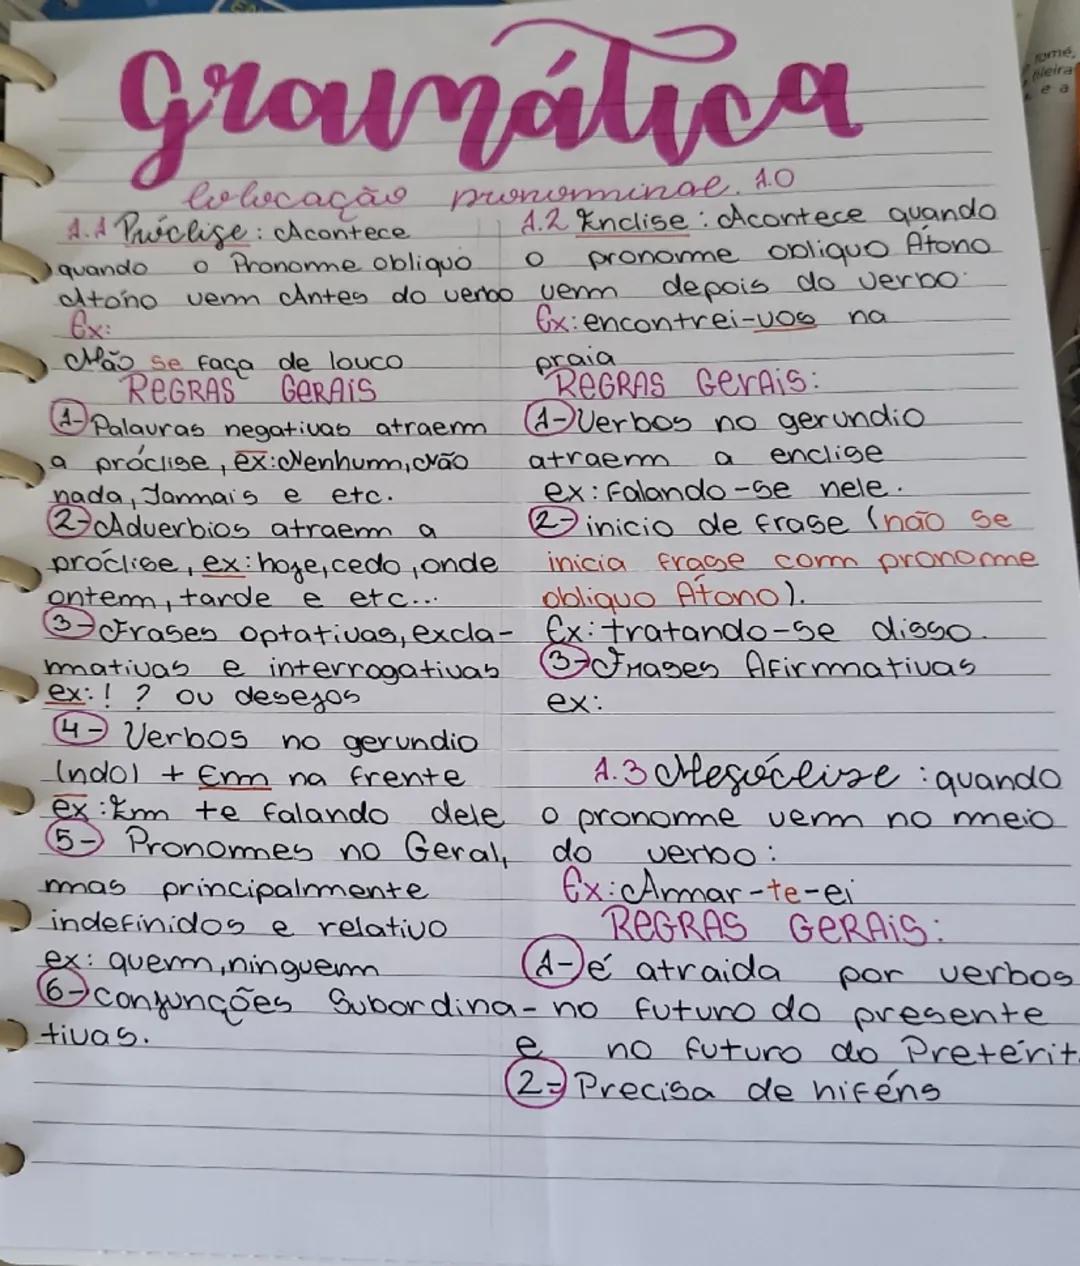 Gramática
Colocação pronominal. 1.0
1.1 Próclise: Acontece
quando o Pronome obliquo
Atono vem Antes do verbo
Ex:
Não se faça de louco
REGRAS GERAIS
1- Palavras negativas atraem
a próclise, ex: Nenhum, Não
nada, Jamais e etc.
2- Adverbios atraem a
próclise, ex: hoje, cedo, onde
ontem, tarde e etc...
3- Frases optativas, excla-
mativas e interrogativas
ex: ! ? ou desejos
4- Verbos no gerundio
(ndo) + Em na frente
ex: Em te falando dele
5- Pronomes no Geral,
mas principalmente
indefinidos e relativo
ex: quem, ninguem
6- conjunções Subordina-
tivas.
1.2 Enclise: Acontece quando
o pronome obliquo Átono
vem depois do verbo:
Ex: encontrei-vos na
praia
REGRAS GERAIS:
1- Verbos no gerundio
atraem a enclise
ex: Falando-se nele.
2- inicio de frase (não se
inicia frase com pronome
obliquo Átono).
Ex: tratando-se disso.
3- Frases Afirmativas
ex:
1.3 Mesóclise: quando
o pronome vem no meio
do verbo:
Ex: Amar-te-ei
REGRAS GERAIS:
1- é atraida por verbos
no futuro do presente
e no futuro do Preterit
2- Precisa de hiféns
fileira
e a